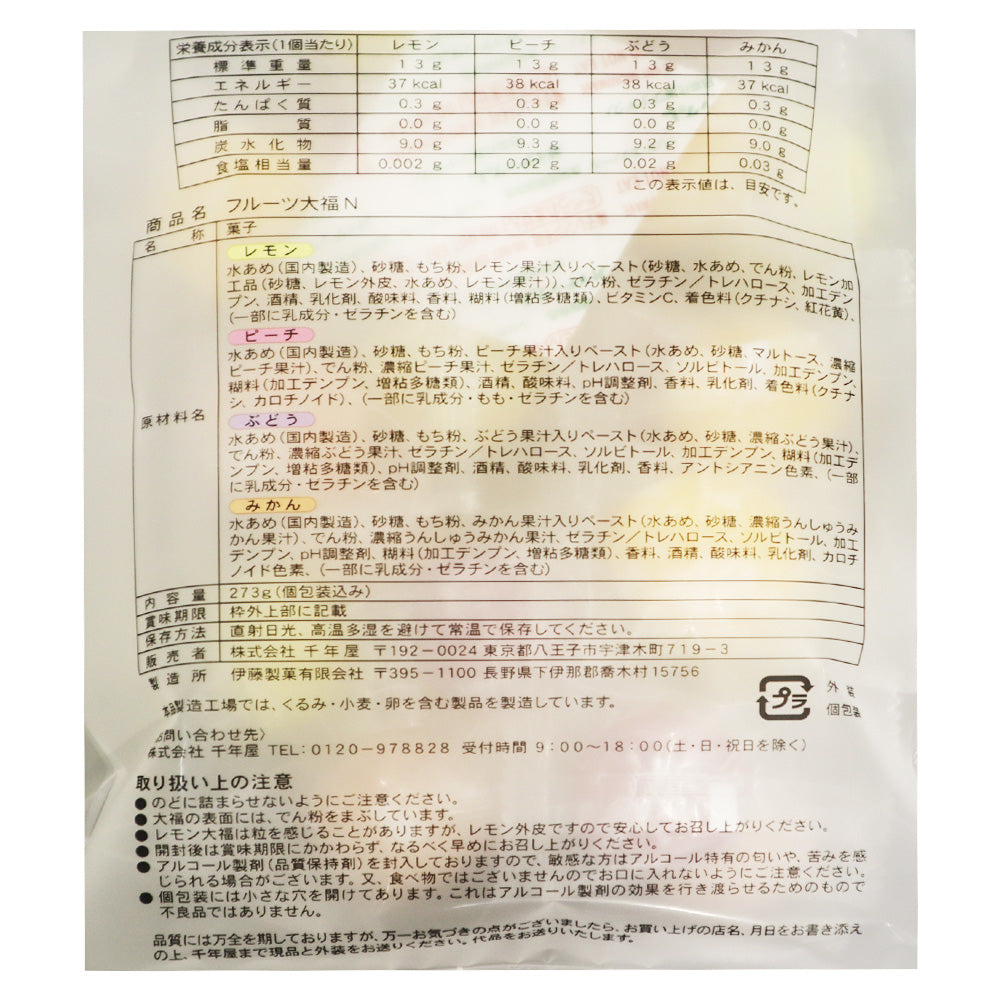 栄養成分表示(1個当たり) レモン ピーチ ぶどう みかん
標準重量 13g 13g 13g 13g
エネルギー 37kcal 38kcal 38kcal 37kcal
たんぱく質 0.3g 0.3g 0.3g 0.3g
脂質 0.0g 0.0g 0.0g 0.0g
炭水化物 9.0g 9.3g 9.2g 9.0g
食塩相当量 0.002g 0.02g 0.02g 0.03g
この表示値は、目安です。
商品名 フルーツ大福N
名称 菓子
原材料名
レモン
水あめ(国内製造)、砂糖、もち粉、レモン果汁入りペースト(砂糖、水あめ、でん粉、レモン加
工品(砂糖、レモン外皮、水あめ、レモン果汁))、でん粉、ゼラチン/トレハロース、加工デン
プン、酒精、乳化剤、酸味料、香料、糊料(増粘多糖類)、ビタミンC、着色料(クチナシ、紅花黄)、
(一部に乳成分・ゼラチンを含む)
ピーチ
水あめ(国内製造)、砂糖、もち粉、ピーチ果汁入りペースト(水あめ、砂糖、マルトース、濃縮
ピーチ果汁)、でん粉、濃縮ピーチ果汁、ゼラチン/トレハロース、ソルビトール、加工デンプン、
糊料(加工デンプン、増粘多糖類)、酒精、酸味料、pH調整剤、香料、乳化剤、着色料(クチナ
シ、カロチノイド)、(一部に乳成分・もも・ゼラチンを含む)
ぶどう
水あめ(国内製造)、砂糖、もち粉、ぶどう果汁入りペースト(水あめ、砂糖、濃縮ぶどう果汁)、
でん粉、濃縮ぶどう果汁、ゼラチン/トレハロース、ソルビトール、加工デンプン、糊料(加工デ
ンプン、増粘多糖類)、pH調整剤、酒精、酸味料、乳化剤、香料、アントシアニン色素、(一部
に乳成分・ゼラチンを含む)
みかん
水あめ(国内製造)、砂糖、もち粉、みかん果汁入りペースト(水あめ、砂糖、濃縮うんしゅうみ
かん果汁)、でん粉、濃縮うんしゅうみかん果汁、ゼラチン/トレハロース、ソルビトール、加工
デンプン、pH調整剤、糊料(加工デンプン、増粘多糖類)、香料、酒精、酸味料、乳化剤、カロチ
ノイド色素、(一部に乳成分・ゼラチンを含む)
内容量 273g(個包装込み)
賞味期限 枠外上部に記載
保存方法 直射日光、高温多湿を避けて常温で保存してください。
販売者 株式会社 千年屋 〒192-0024 東京都八王子市宇津木町719-3
製造所 伊藤製菓有限会社 〒395-1100 長野県下伊那郡喬木村15756
本品製造工場では、くるみ・小麦・卵を含む製品を製造しています。
プラ 外装 個包装
お問い合わせ先〉
株式会社 千年屋 TEL:0120-978828 受付時間 9:00〜18:00(土・日・祝日を除く)
取り扱い上の注意
●のどに詰まらせないようにご注意ください。
●大福の表面には、でん粉をまぶしています。
●レモン大福は粒を感じることがありますが、レモン外皮ですので安心してお召し上がりください。
●開封後は賞味期限にかかわらず、なるべく早めにお召し上がりください。
●アルコール製剤(品質保持剤)を封入しておりますので、敏感な方はアルコール特有の匂いや、苦みを感
じられる場合がございます。又、食べ物ではございませんのでお口に入れないようにご注意ください。
●個包装には小さな穴を開けてあります。これはアルコール製剤の効果を行き渡らせるためのもので
不良品ではありません。
品質には万全を期しておりますが、万一お気づきの点がございましたら、お買い上げの店名、月日をお書き添え
の上、千年屋まで現品と外装をお送りください。代品をお送りいたします。